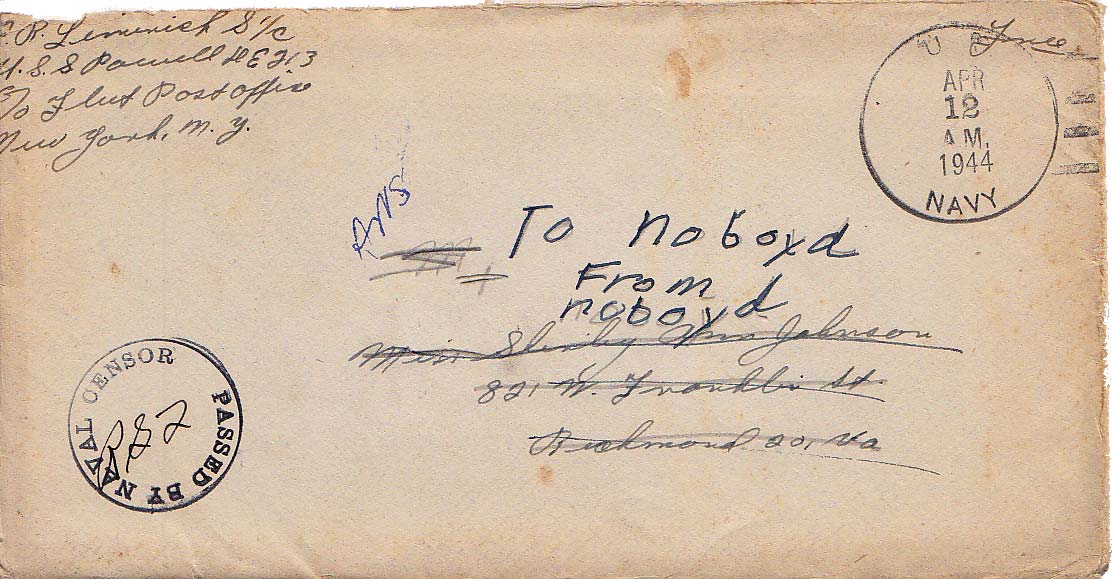 R. Limerick S 1/c
U.S.S Powell DE 213
c/o Fleet Post office
New York, N.Y.
Free
U.S.
APR
12
A M.
1944
NAVY
To noboyd
From
noboyd
Miss Shirley Ann Johnson
821 W. Franklin St
Richmond 20, Va
PASSED BY NAVAL CENSOR